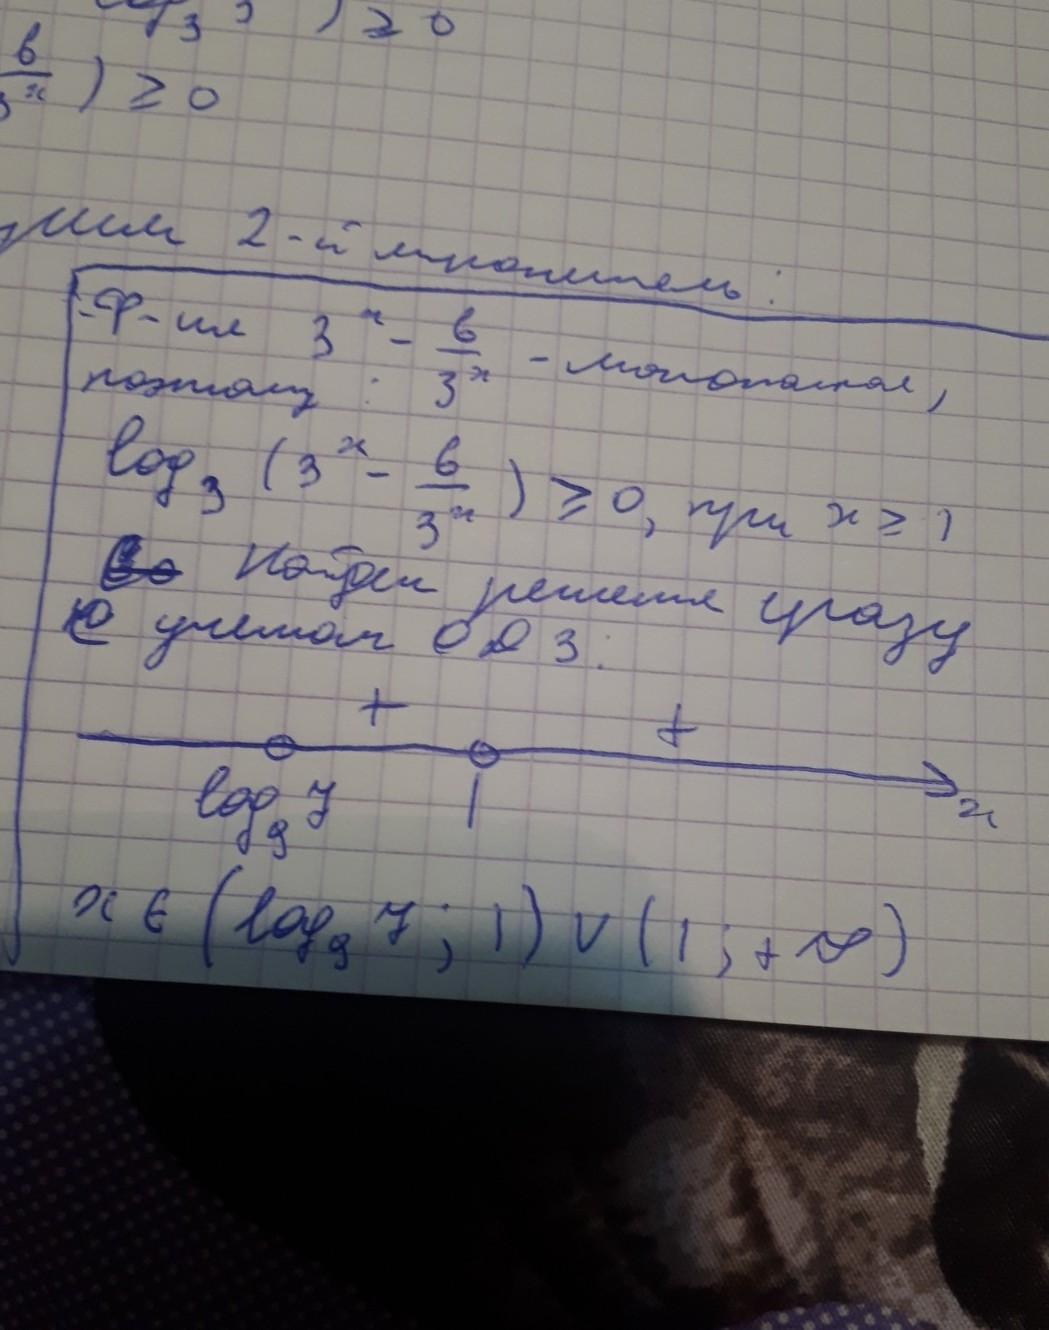 ) ≥ 0
6/3^x ) ≥ 0
2-й множитель:
Ф-ия 3^x - 6/3^x - монотонная,
поэтому:
log_3 (3^x - 6/3^x) ≥ 0, при x ≥ 1
Найдем решения сразу
с учетом ОДЗ:
+ +
log_9 7 1 x
x ∈ (log_9 7; 1) ∪ (1; +∞)